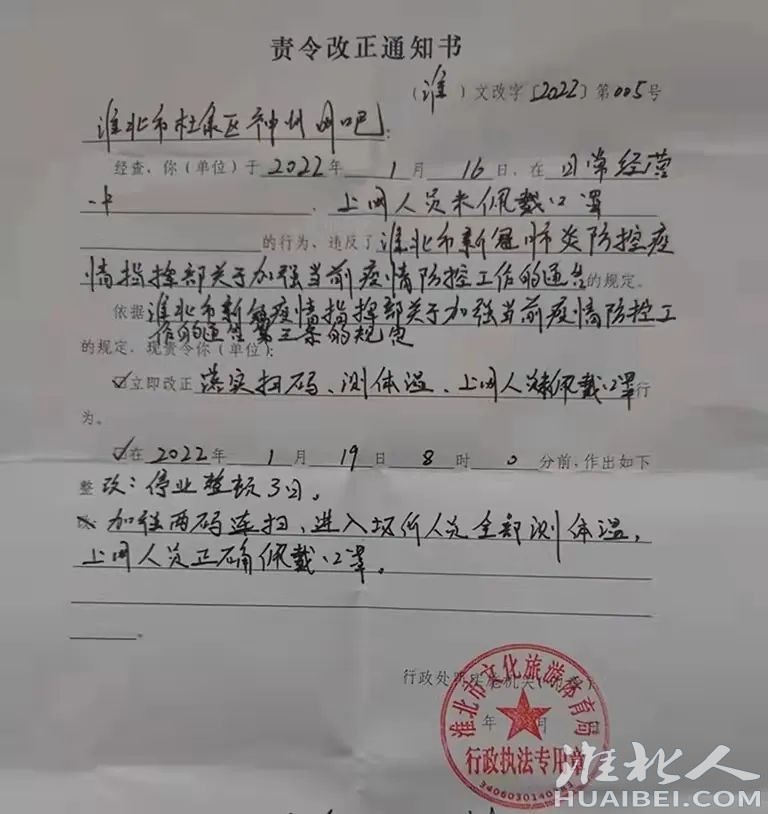 责令改正通知书
（淮）文改字［2022］第005号
淮北市杜集区神州网吧：
经查，你（单位）于2022年1月16日，在日常经营
中，上网人员未佩戴口罩
的行为，违反了淮北市新冠肺炎防控疫
情指挥部关于加强当前疫情防控工作的通告的规定。
依据淮北市新冠疫情指挥部关于加强当前疫情防控工
作的通告第三条的规定
的规定，现责令你（单位）：
☑立即改正落实扫码、测体温、上网人员佩戴口罩行
为。
☑在2022年1月19日8时0分前，作出如下
整改：停业整顿3日。
加强两码连扫，进入场所人员全部测体温，
上网人员正确佩戴口罩。
。
行政处罚实施机关
年 月
淮北市文化旅游体育局
行政执法专用章
淮北人
HUAIBEI.COM